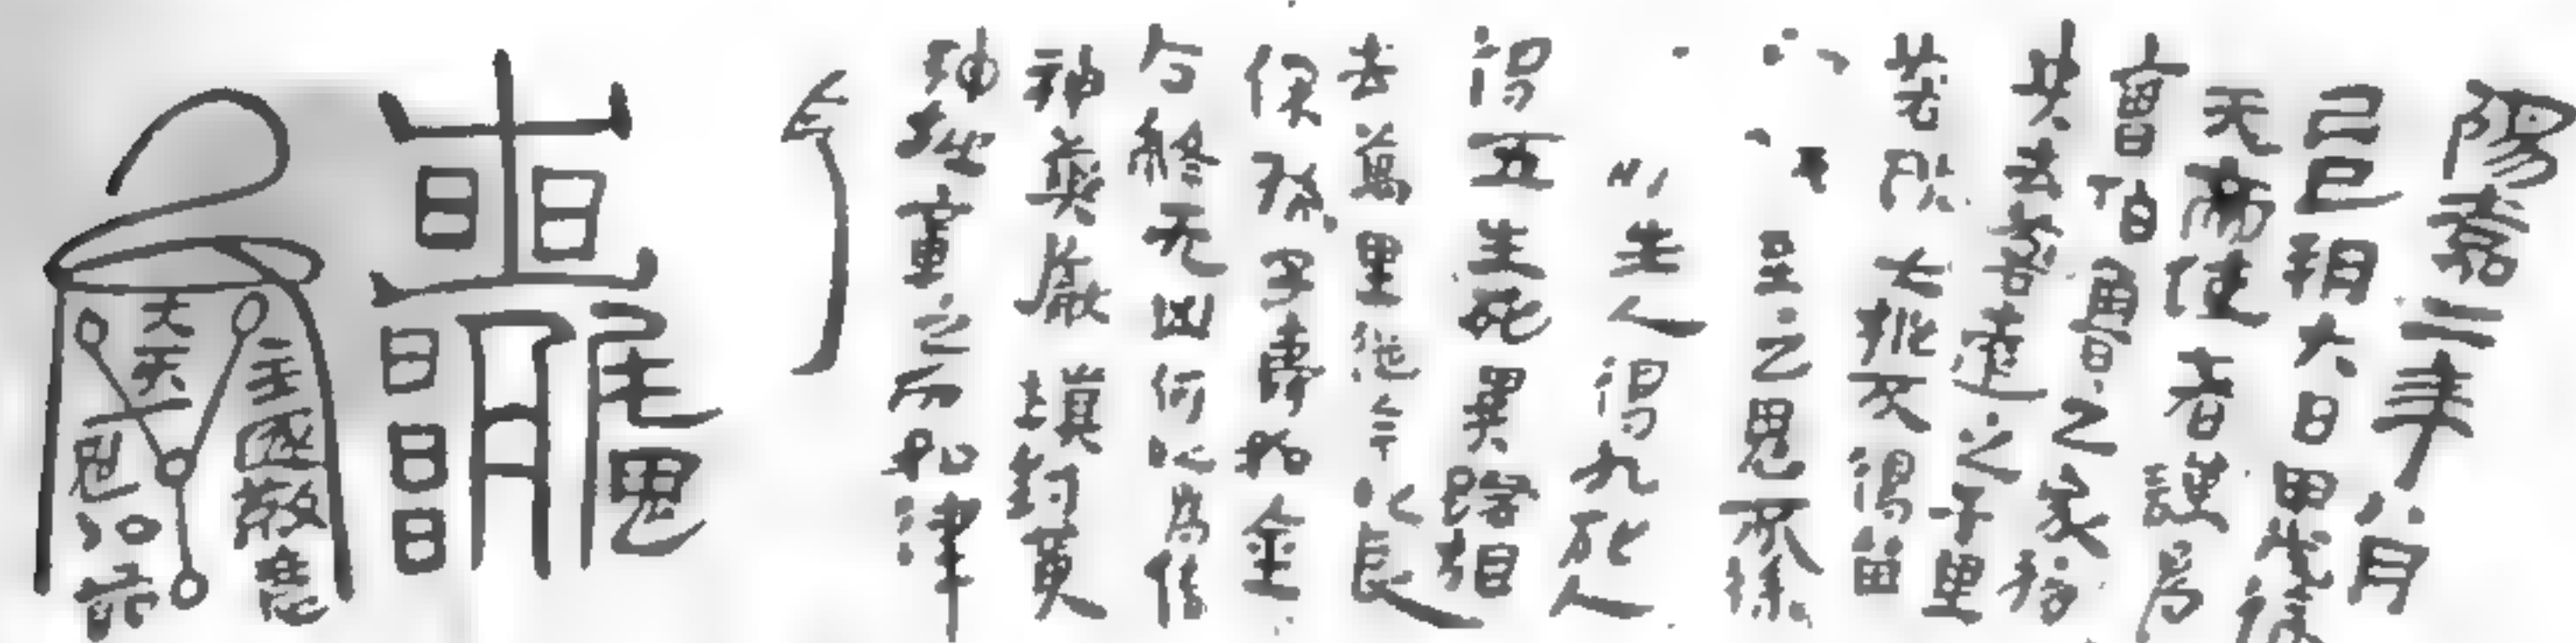 陽嘉二年八月
己巳朔六日甲戌徐
天帝使者謹為
曹伯魯之家移
央去咎遠之千里
咎殃大桃不得留
至之鬼所徐
生人得九死人
得五生死異路相
去萬里從今以長
保孫子壽如金
石終无凶何以為信
神藥厭填封黃
神越章之印如律
令
尾鬼
日日
日日日
主國敬惡
大天一
鬼以節